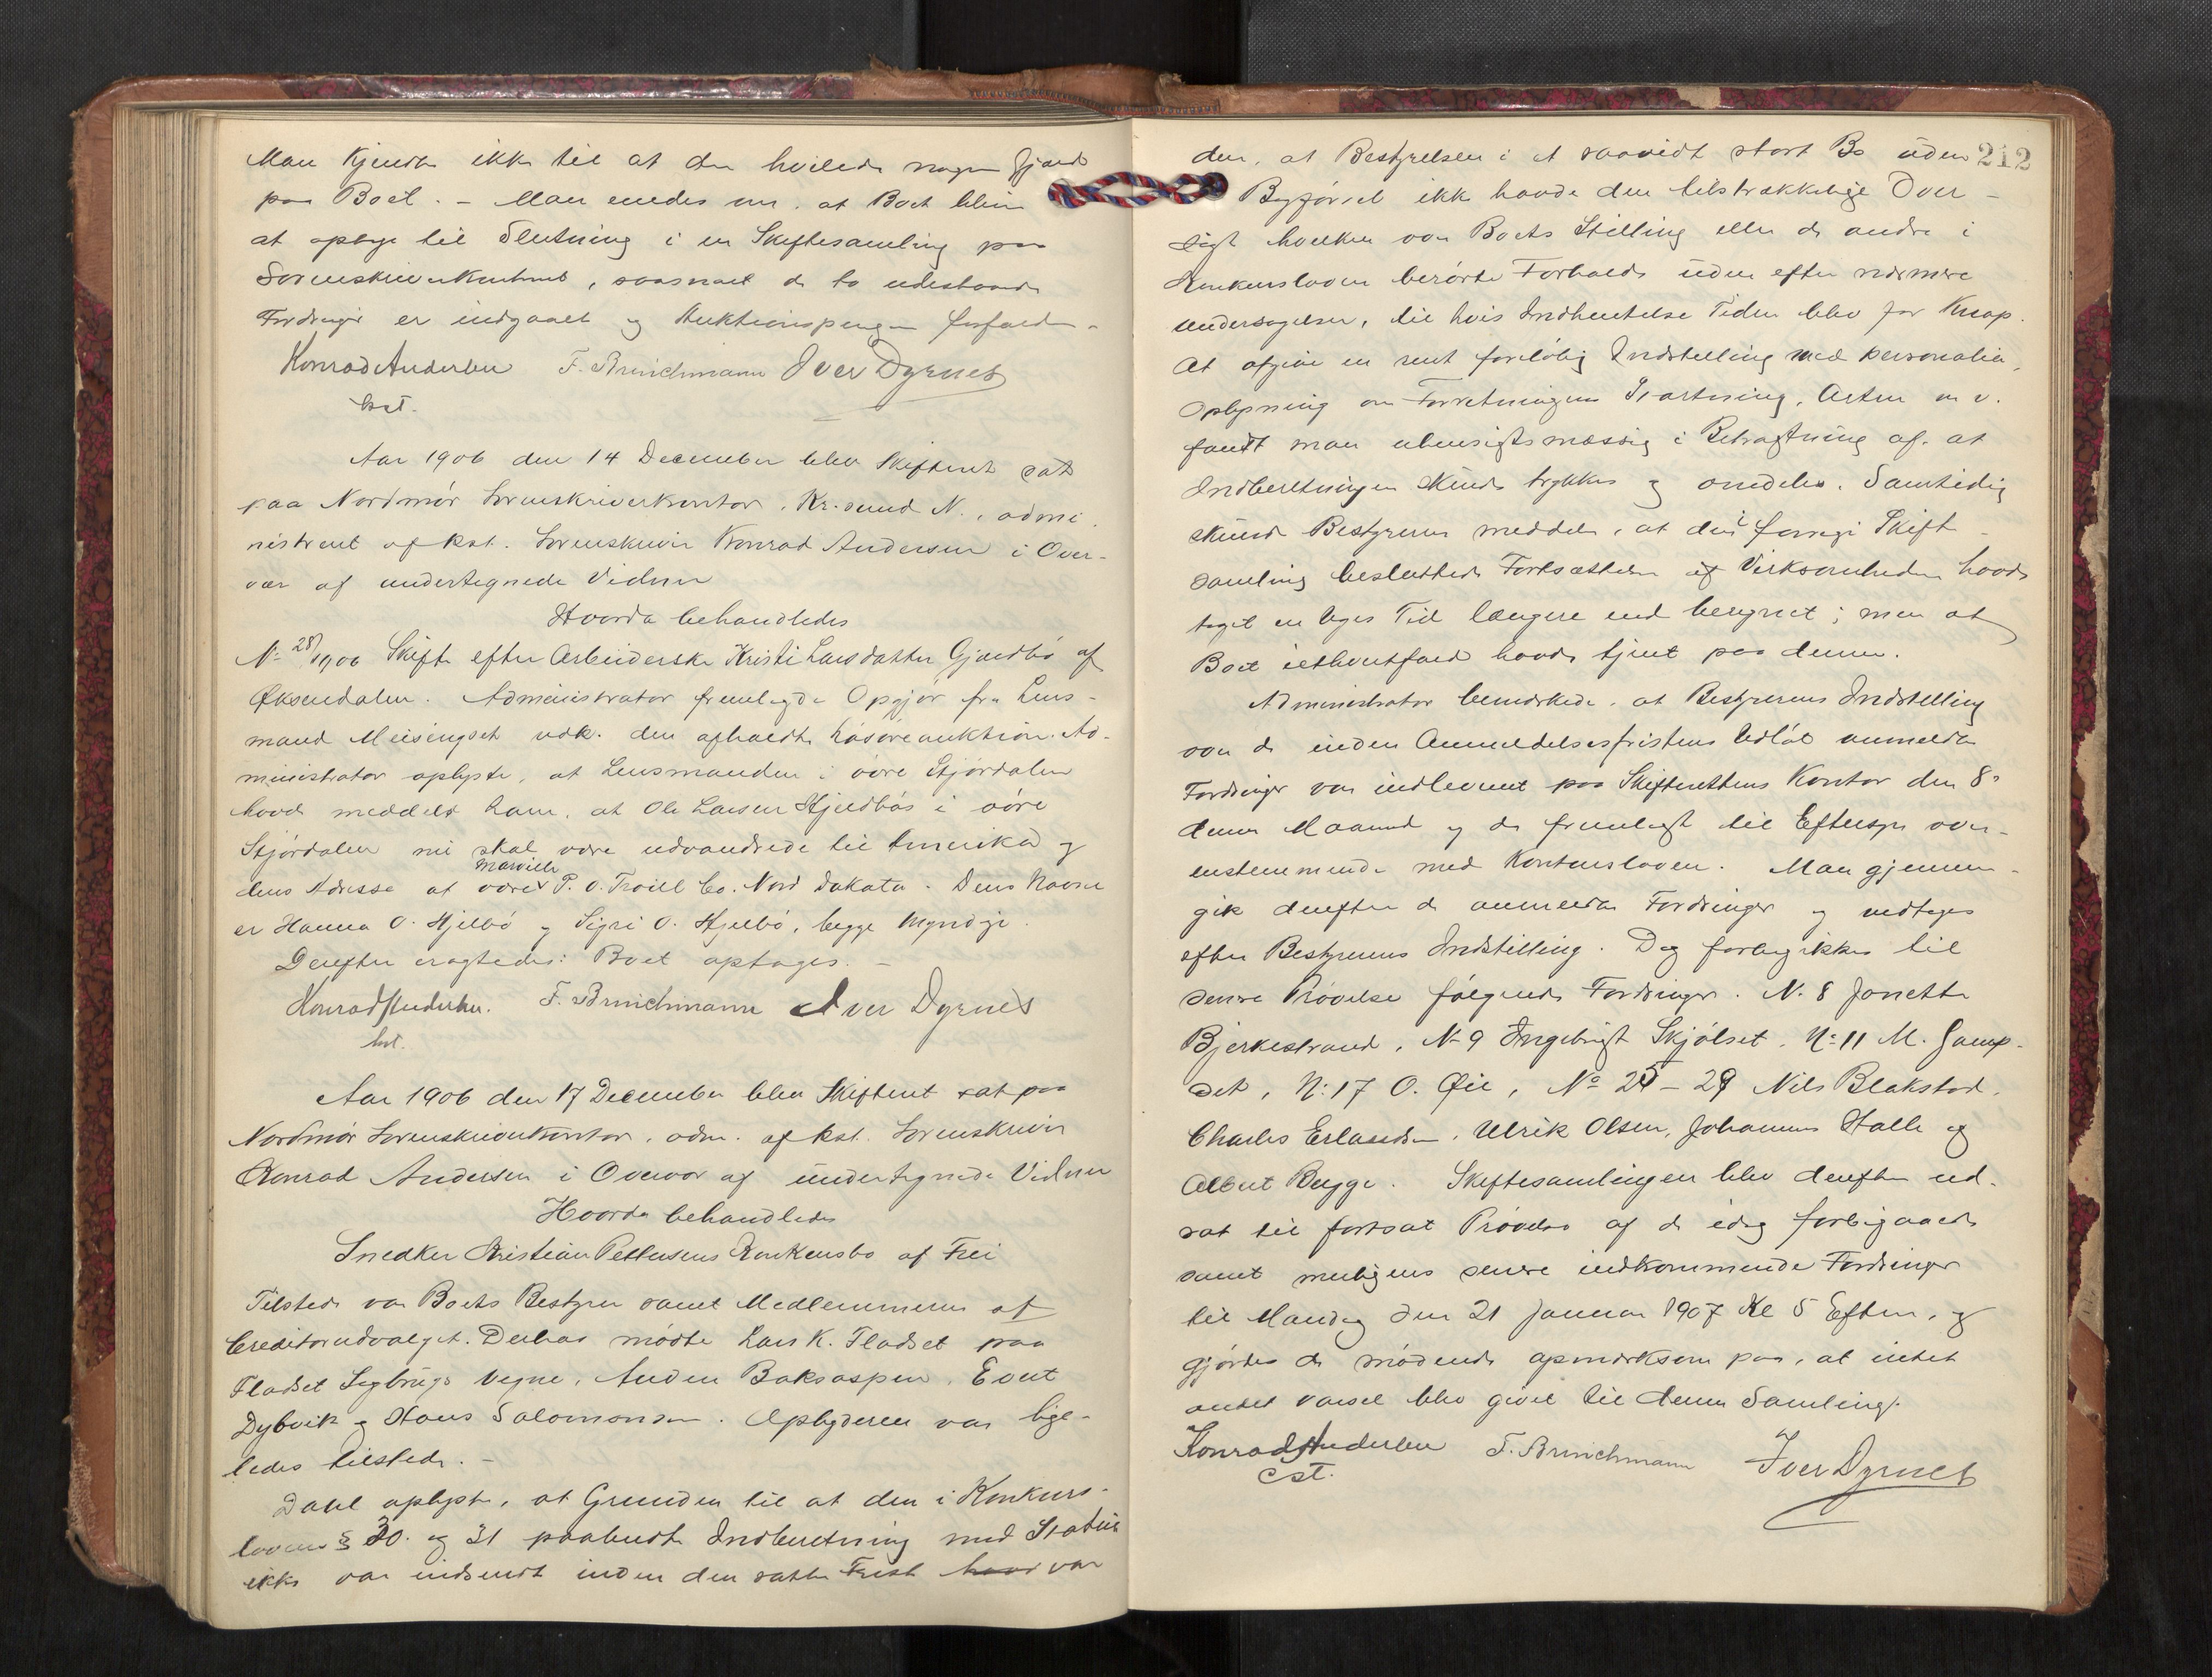 Man kjendte ikke til at der hvilede nogen Gjæld
paa Boet. – Man enedes om, at Boet bliver
at optage til Slutning i en Skiftesamling paa
Sorenskriverkontoret, saasnart de to udestaaende
Fordringer er indgaaet og Auktionspengene forfaldne.
Konrad Andersen F. Brinchmann Iver Dyrnes
kst.
Aar 1906 den 14 December blev Skifteret sat
paa Nordmør Sorenskriverkontor, Kr.sund N., admi-
nistreret af kst. Sorenskriver Konrad Andersen i Over-
vær af undertegnede Vidner
Hvorda behandledes
No 28/1906 Skifte efter Arbeiderske Kristi Larsdatter Gjeldbø af
Øksendalen. Administrator fremlagde Opgjør fra Lens-
mand Meisingset vedk. den afholdte Løsøreauktion. Ad-
ministrator oplyste, at Lensmanden i øvre Stjørdalen
havde meddelt ham, at Ole Larsen Hjeldbøs i øvre
Stjørdalen nu skal være udvandrede til Amerika og
deres Adresse at være Marville P. O. Traill Co. Nord Dakota. Deres Navne
er Hanna O. Hjelbø og Sigri O. Hjelbø, begge myndige.
Derefter eragtedes: Boet optages. –
Konrad Andersen. F. Brinchmann Iver Dyrnes
kst.
Aar 1906 den 17 December blev Skifteret sat paa
Nordmør Sorenskriverkontor, adm. af kst. Sorenskriver
Konrad Andersen i Overvær af undertegnede Vidner
Hvorda behandledes
Snedker Kristian Pettersens Konkursbo af Frei
Tilstede var Boets Bestyrer samt Medlemmerne af
Creditorudvalget. Derhos mødte Lars K. Fladset paa
Fladset Sagbrugs Vegne, Anders Baksaspen, Evert
Dybvik og Hans Salomonsen. Opbyderen var lige-
ledes tilstede. –
Dahl oplyste, at Grunden til at den i Konkurs-
loven § 30. og 31 paabudte Indberetning med Status
ikke var indsendt inden den satte Frist var
212
den, at Bestyrelsen i et saavidt stort Bo uden
Bogførsel ikke havde den tilstrækkelige Over-
sigt hverken over Boets Stilling eller de andre i
Konkursloven berørte Forholde uden efter nærmere
Undersøgelser, til hvis Indhentelse Tiden blev for knap.
At afgive en rent foreløbig Indstilling med personalia,
Oplysning om Forretningens Startning, Arten m. v.
fandt man uhensigtsmæssig i Betragtning af, at
Indberetningen skulde trykkes og omdeles. Samtidig
skulde Bestyreren meddele, at den i forrige Skifte-
samling besluttede Fortsættelse af Virksomheden havde
taget en Uges Tid længere end beregnet; men at
Boet ialtfald havde tjent paa denne.
Administrator bemærkede, at Bestyrerens Indstilling
over de inden Anmeldelsesfristens Udløb anmeldte
Fordringer var indleveret paa Skifterettens Kontor den 8de
denne Maaned og da fremlagt til Eftersyn over-
ensstemmende med Konkursloven. Man gjennem-
gik derefter de anmeldte Fordringer og vedtoges
efter Bestyrerens Indstilling. Dog forbigikkes til
senere Prøvelse følgende Fordringer. No 8 Jonette
Bjerkestrand, No 9 Ingebrigt Skjølset, No 11 M. Gimp-
set, No 17 O. Øie, No 25 – 29 Nils Blakstad,
Charles Erlandsen, Ulrik Olsen, Johannes Halle og
Albert Bugge. Skiftesamlingen blev derefter ud-
sat til fortsat Prøvelse af de idag forbigaaede
samt muligens senere indkommende Fordringer
til Mandag den 21 Januar 1907 Kl 5 Efterm, og
gjordes de mødende opmærksom paa, at intet
andet Varsel blev givet til denne Samling.
Konrad Andersen F. Brinchmann Iver Dyrnes
cst.